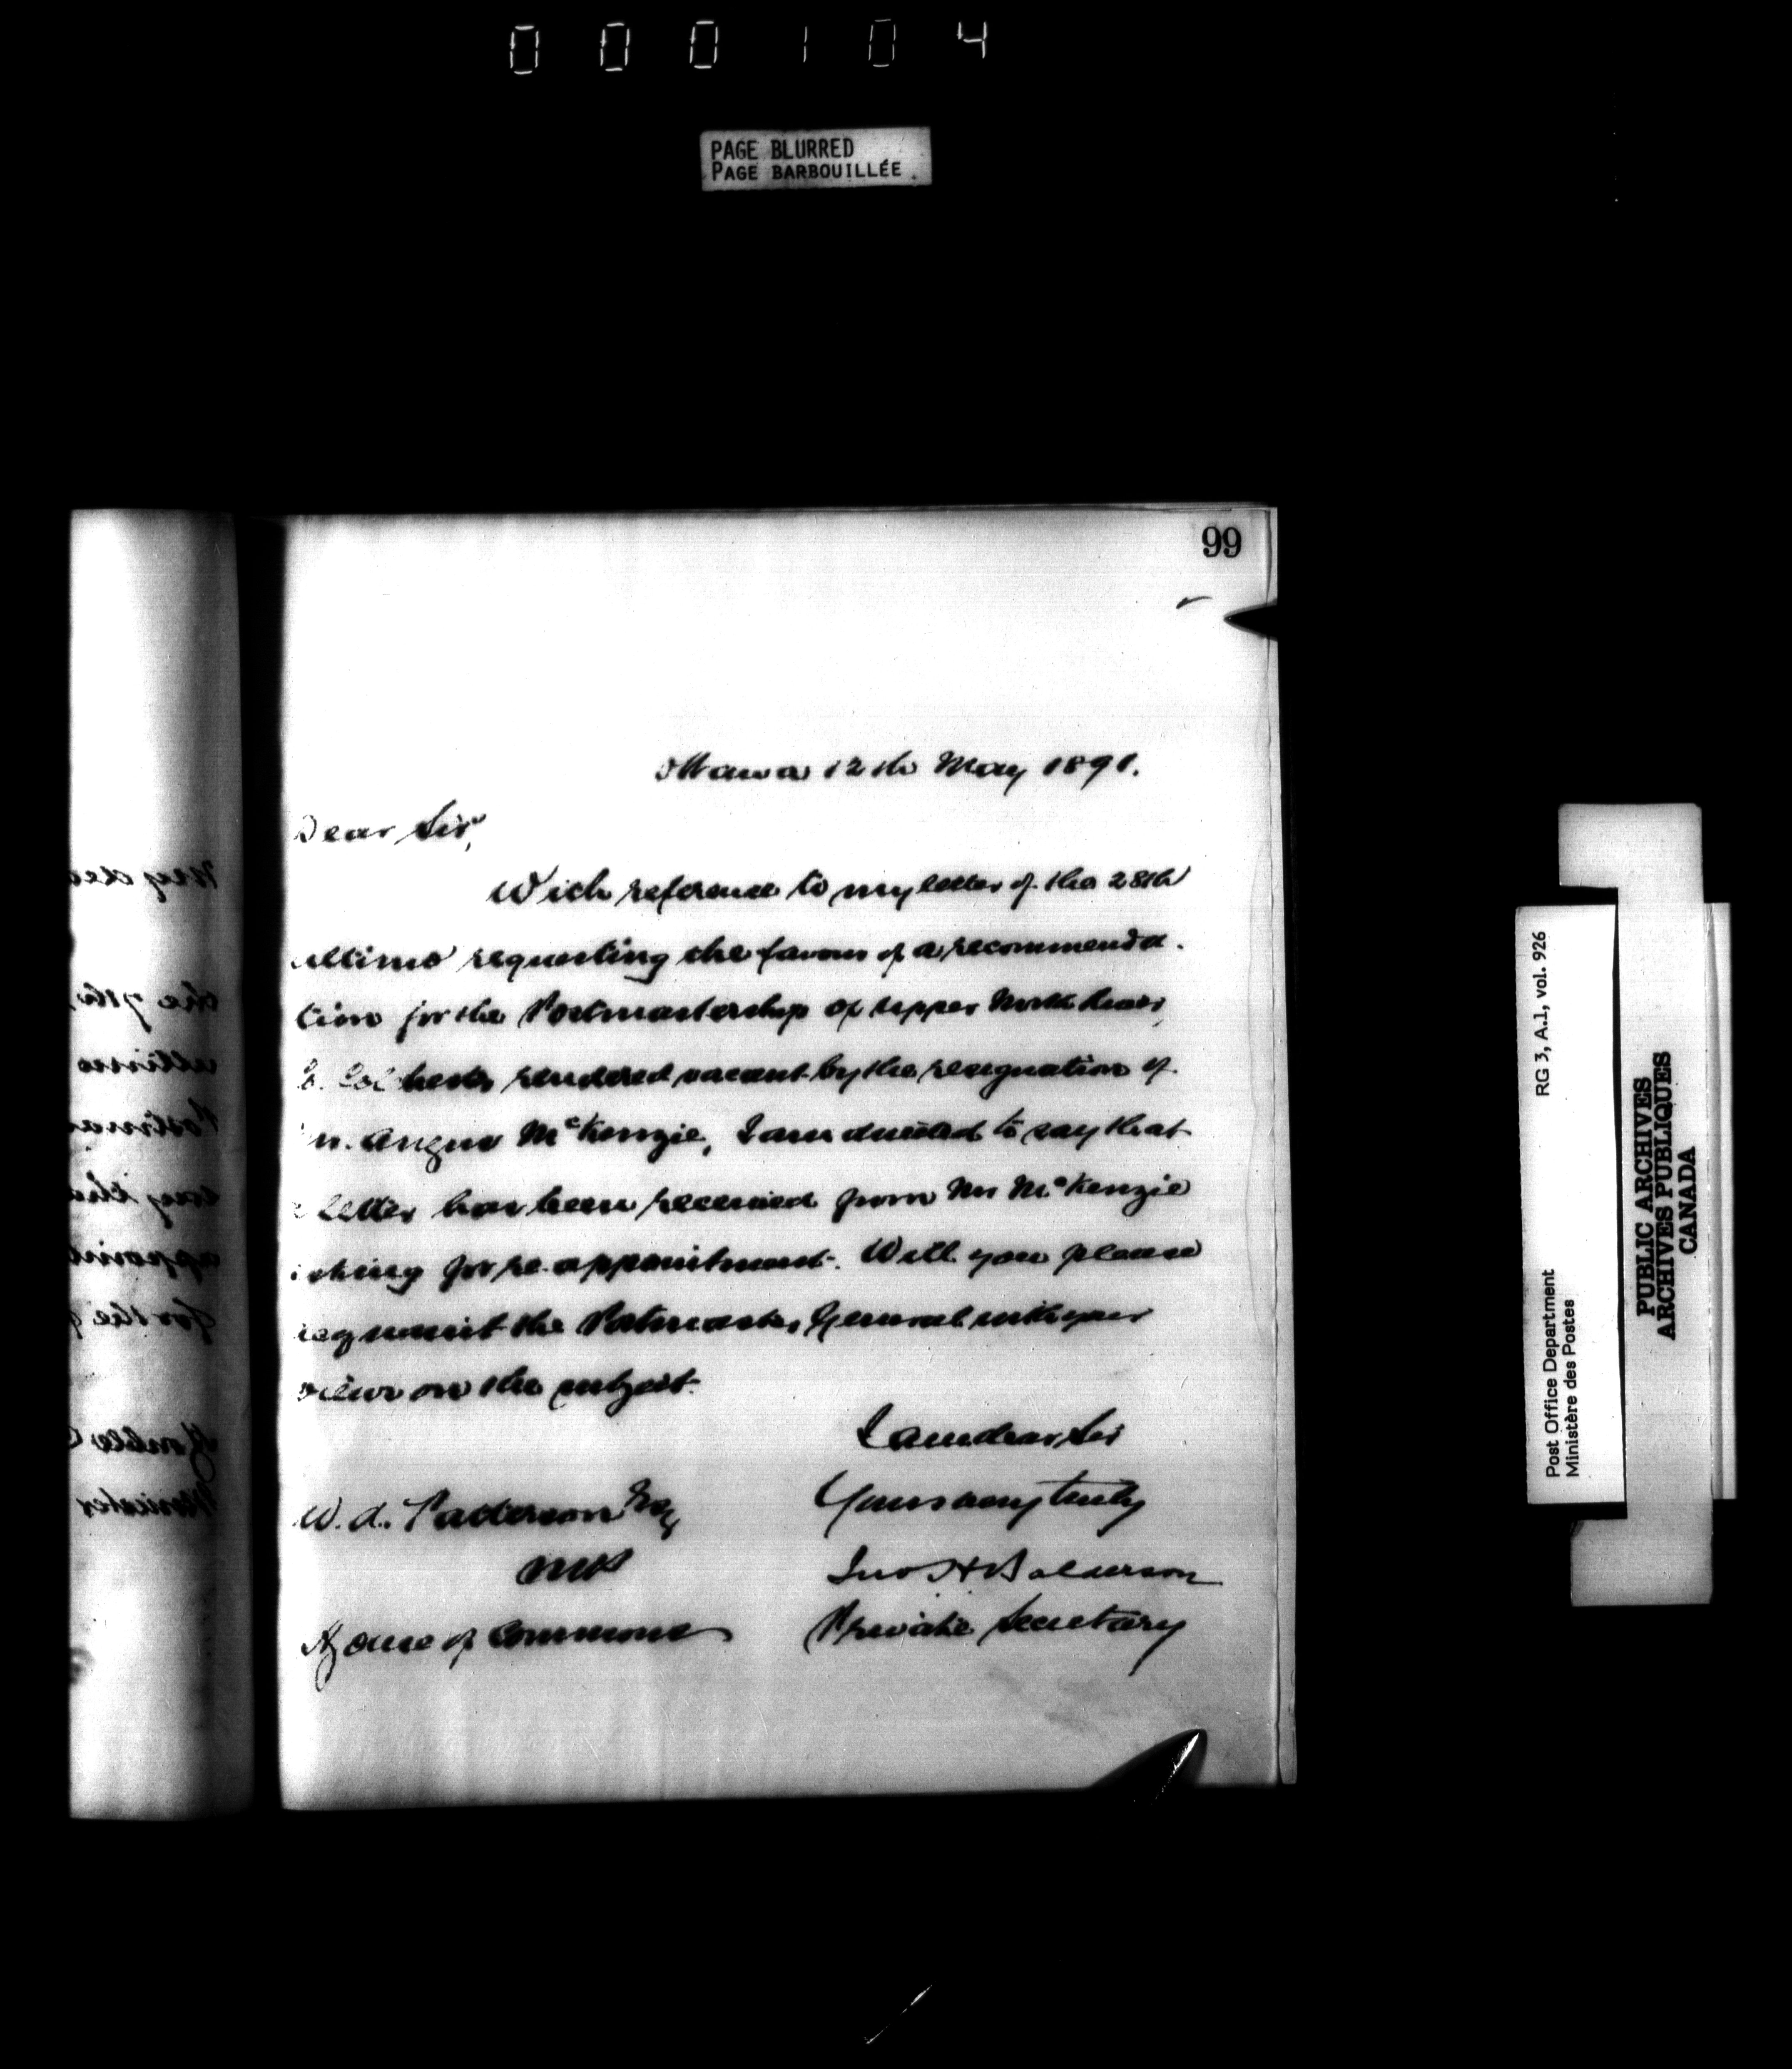 000104
PAGE BLURRED
PAGE BARBOUILLÉE
99
Ottawa 12th May 1891.
Dear Sir,
With reference to my letter of the 28th
ultimo requesting the favour of a recommenda-
tion for the Postmastership of Upper North River,
Co. Colchester rendered vacant by the resignation of
Mr. Angus McKenzie, I am directed to say that
a letter has been received from Mr McKenzie
asking for re-appointment. Will you please
acquaint the Postmaster General with your
views on the subject.
I am dear Sir
Yours very truly
W. A. Patterson Esq
MP
Jno H Balderson
House of Commons
Private Secretary
RG 3, A.1, vol. 926
Post Office Department
Ministère des Postes
PUBLIC ARCHIVES
ARCHIVES PUBLIQUES
CANADA